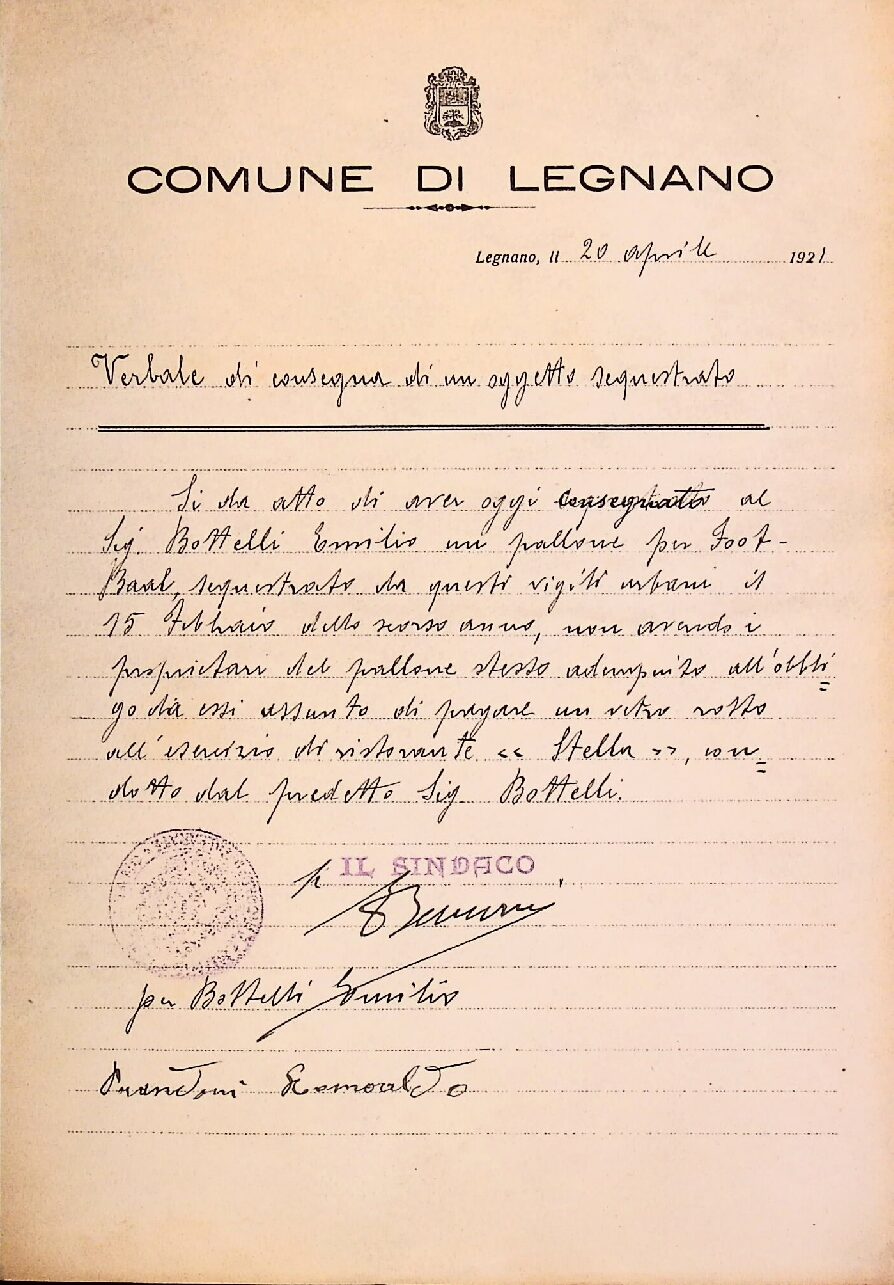 COMUNE DI LEGNANO
Legnano, li 20 aprile 1921
Verbale di consegna di un oggetto sequestrato
Si da atto di aver oggi consegnato al
Sig Bottelli Emilio un pallone per Foot-
Baal, sequestrato da questi vigili urbani il
15 Febbraio dello scorso anno, non avendo i
proprietari del pallone stesso adempiuto all'obbli
go da essi assunto di pagare un vetro rotto
all'esercizio di ristorante << Stella >>, con
dotto dal predetto Sig Bottelli.
p IL SINDACO
per Bottelli Emilio
Prandoni Romoaldo